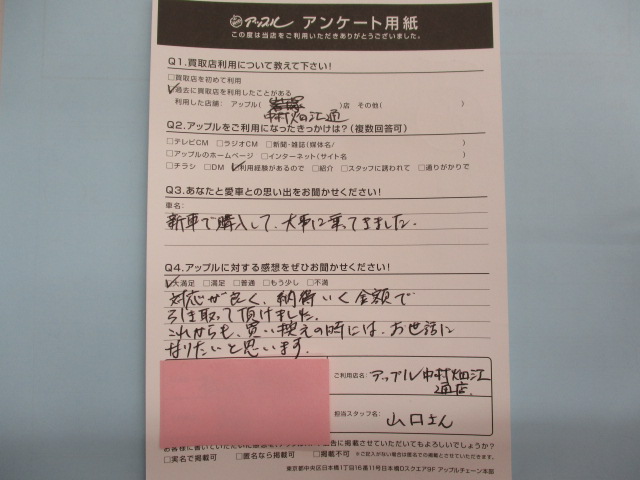 アップル アンケート用紙
この度は当店をご利用いただきありがとうございました。
Q1.買取店利用について教えて下さい!
□買取店を初めて利用
□過去に買取店を利用したことがある
利用した店舗: アップル( )店 その他( )
中村畑江通
Q2.アップルをご利用になったきっかけは?(複数回答可)
□テレビCM □ラジオCM □新聞・雑誌(媒体名/ )
□アップルのホームページ □インターネット(サイト名 )
□チラシ □DM □利用経験があるので □紹介 □スタッフに誘われて □通りがかりで
Q3.あなたと愛車との思い出をお聞かせください!
車名:
新車で購入して、大事に乗ってきました。
Q4.アップルに対する感想をぜひお聞かせください!
□大満足 □満足 □普通 □もう少し □不満
対応が良く、納得いく金額で
引き取って頂けました。
これからも、買い換えの時には、お世話に
なりたいと思います。
ご利用店名: アップル中村畑江
通店
担当スタッフ名: 山口さん
に掲載させていただいてもよろしいでしょうか?
□実名で掲載可 □匿名なら掲載可 □掲載不可 ※ご記入がない場合は匿名での掲載とさせていただきます。
東京都中央区日本橋1丁目16番11号日本橋Dスクエア9F アップルチェーン本部